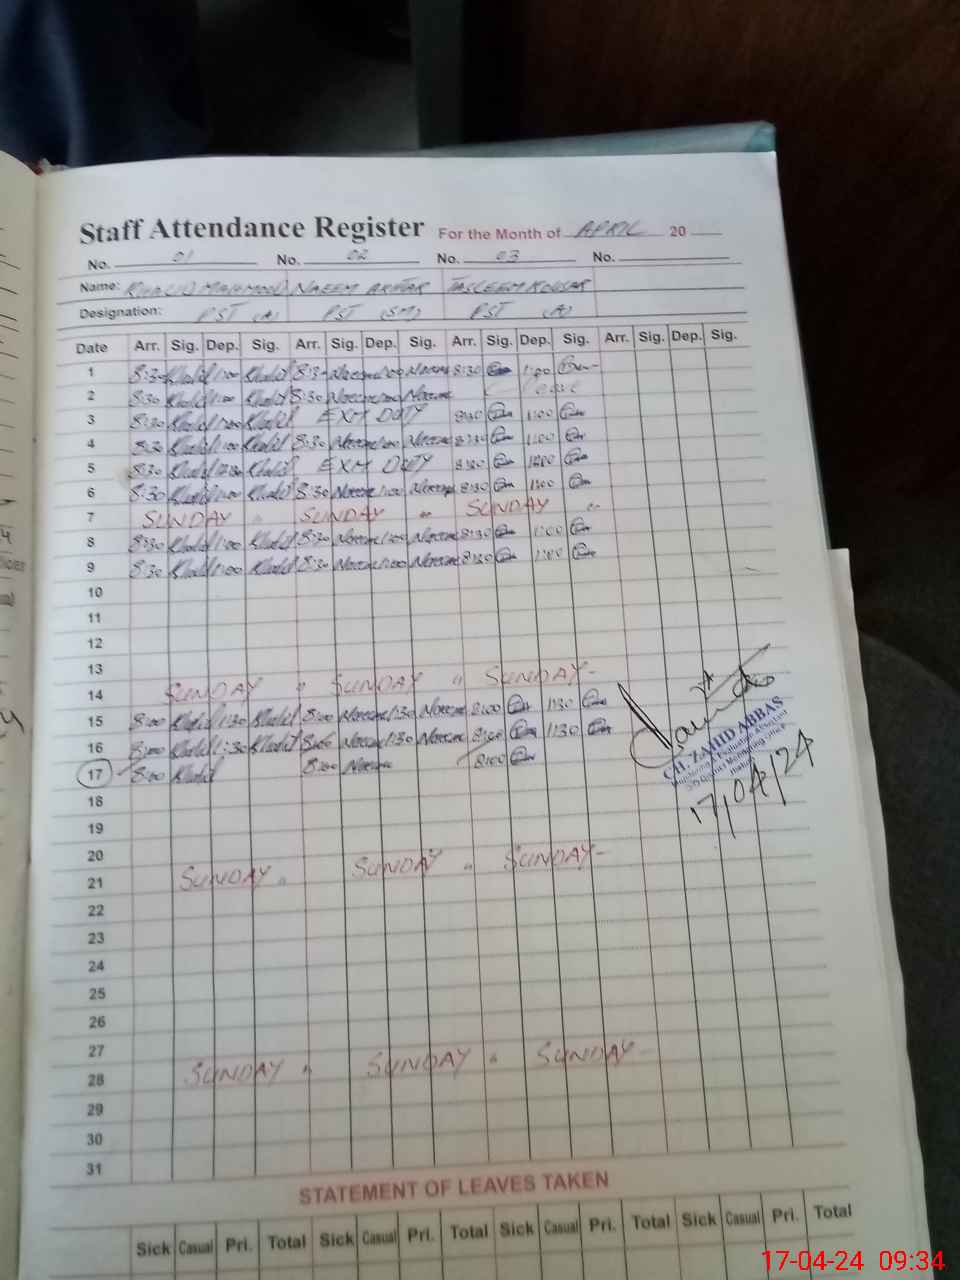 Staff Attendance Register For the Month of APRIL 20
No. 01 No. 02 No. 03 No.
Name: KHALID MAHMOOD NAEEM AKHTAR TASLEEM KOUSAR
Designation: PST (A) PST (SM) PST (A)
Date Arr. Sig. Dep. Sig. Arr. Sig. Dep. Sig. Arr. Sig. Dep. Sig. Arr. Sig. Dep. Sig.
1 8:30 Khalid 1:00 Khalid 8:30 1:00 8:30 1:00
2 8:30 Khalid 1:00 Khalid 8:30 Leave
3 8:30 Khalid Khalid EXM DUTY 8:30 1:00
4 8:30 Khalid 1:00 Khalid 8:30 1:00 8:30 1:00
5 8:30 Khalid Khalid EXM DUTY 8:30
6 8:30 Khalid 1:00 Khalid 8:30 1:00 8:30 1:00
7 SUNDAY " SUNDAY " SUNDAY "
8 8:30 Khalid 1:00 Khalid 8:30 1:00 8:30 1:00
9 8:30 Khalid 1:00 Khalid 8:30 1:00 8:30 1:00
10
11
12
13
14 SUNDAY " SUNDAY " SUNDAY -
15 8:00 Khalid 1:30 Khalid 8:00 1:30 8:00 1:30
16 8:00 Khalid 1:30 Khalid 8:00 1:30 8:00 1:30
17 8:00 Khalid 8:00 8:00
CH. ZAHID ABBAS
Monitoring & Evaluation Assistant
District Monitoring Office
17/04/24
18
19
20
21 SUNDAY " SUNDAY " SUNDAY -
22
23
24
25
26
27
28 SUNDAY " SUNDAY " SUNDAY -
29
30
31
STATEMENT OF LEAVES TAKEN
Sick Casual Pri. Total Sick Casual Pri. Total Sick Casual Pri. Total Sick Casual Pri. Total
17-04-24 09:34